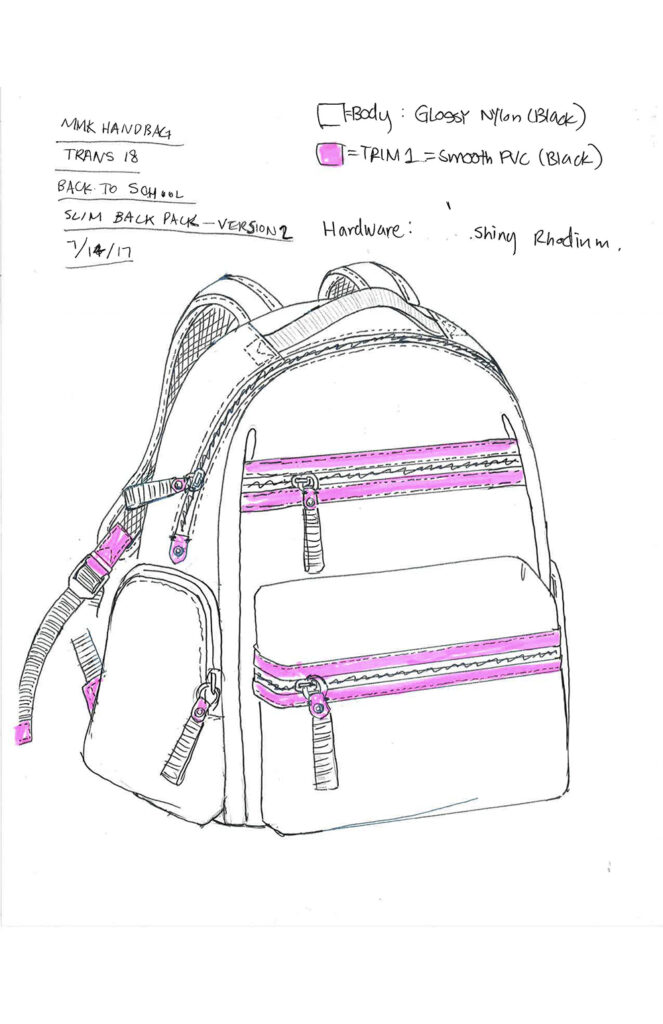 MMK HANDBAG
TRANS 18
BACK TO SCHOOL
SLIM BACK PACK – VERSION 2
7/14/17
=Body : Glossy Nylon (Black)
=TRIM 1 = Smooth PVC (Black)
Hardware: Shiny Rhodium.